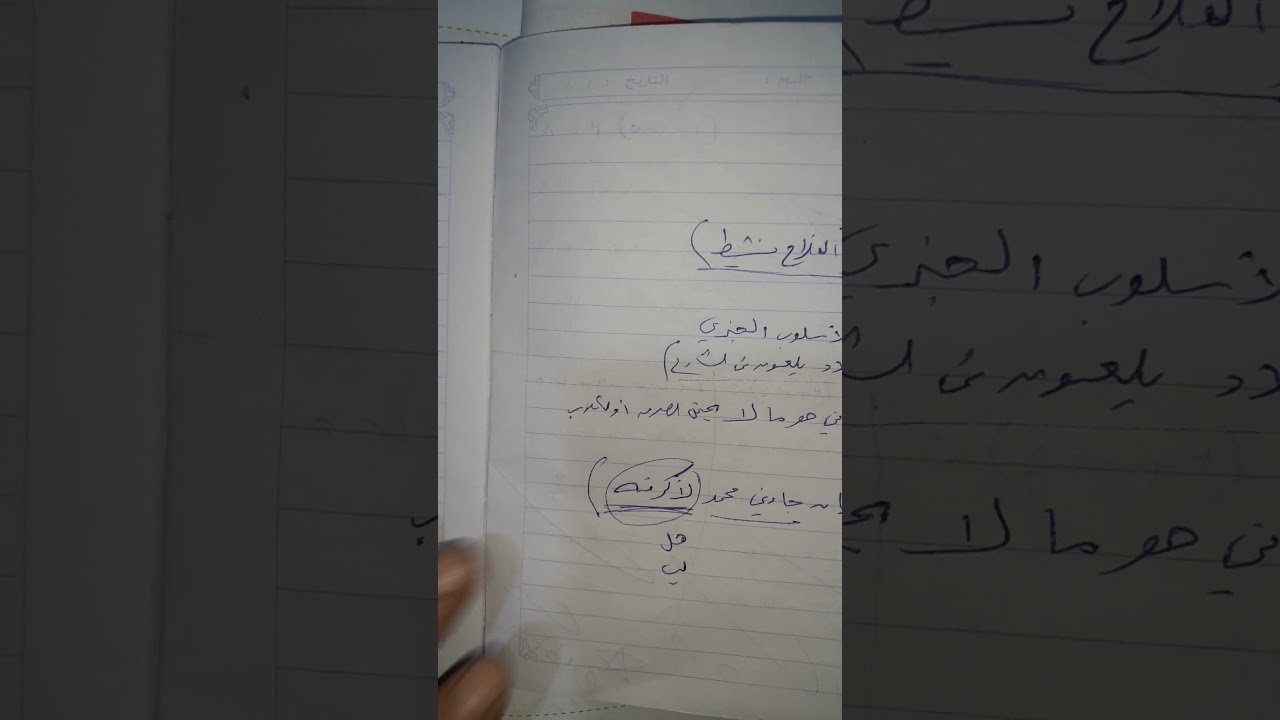 اليوم : التاريخ : / /
الفلاح نشيط)
الأسلوب الخبري
لاد يلعبون في الشارع)
ني هو ما لا يحتمل الصدق أو الكذب
إن جاءني محمد لأكرمته)
هل